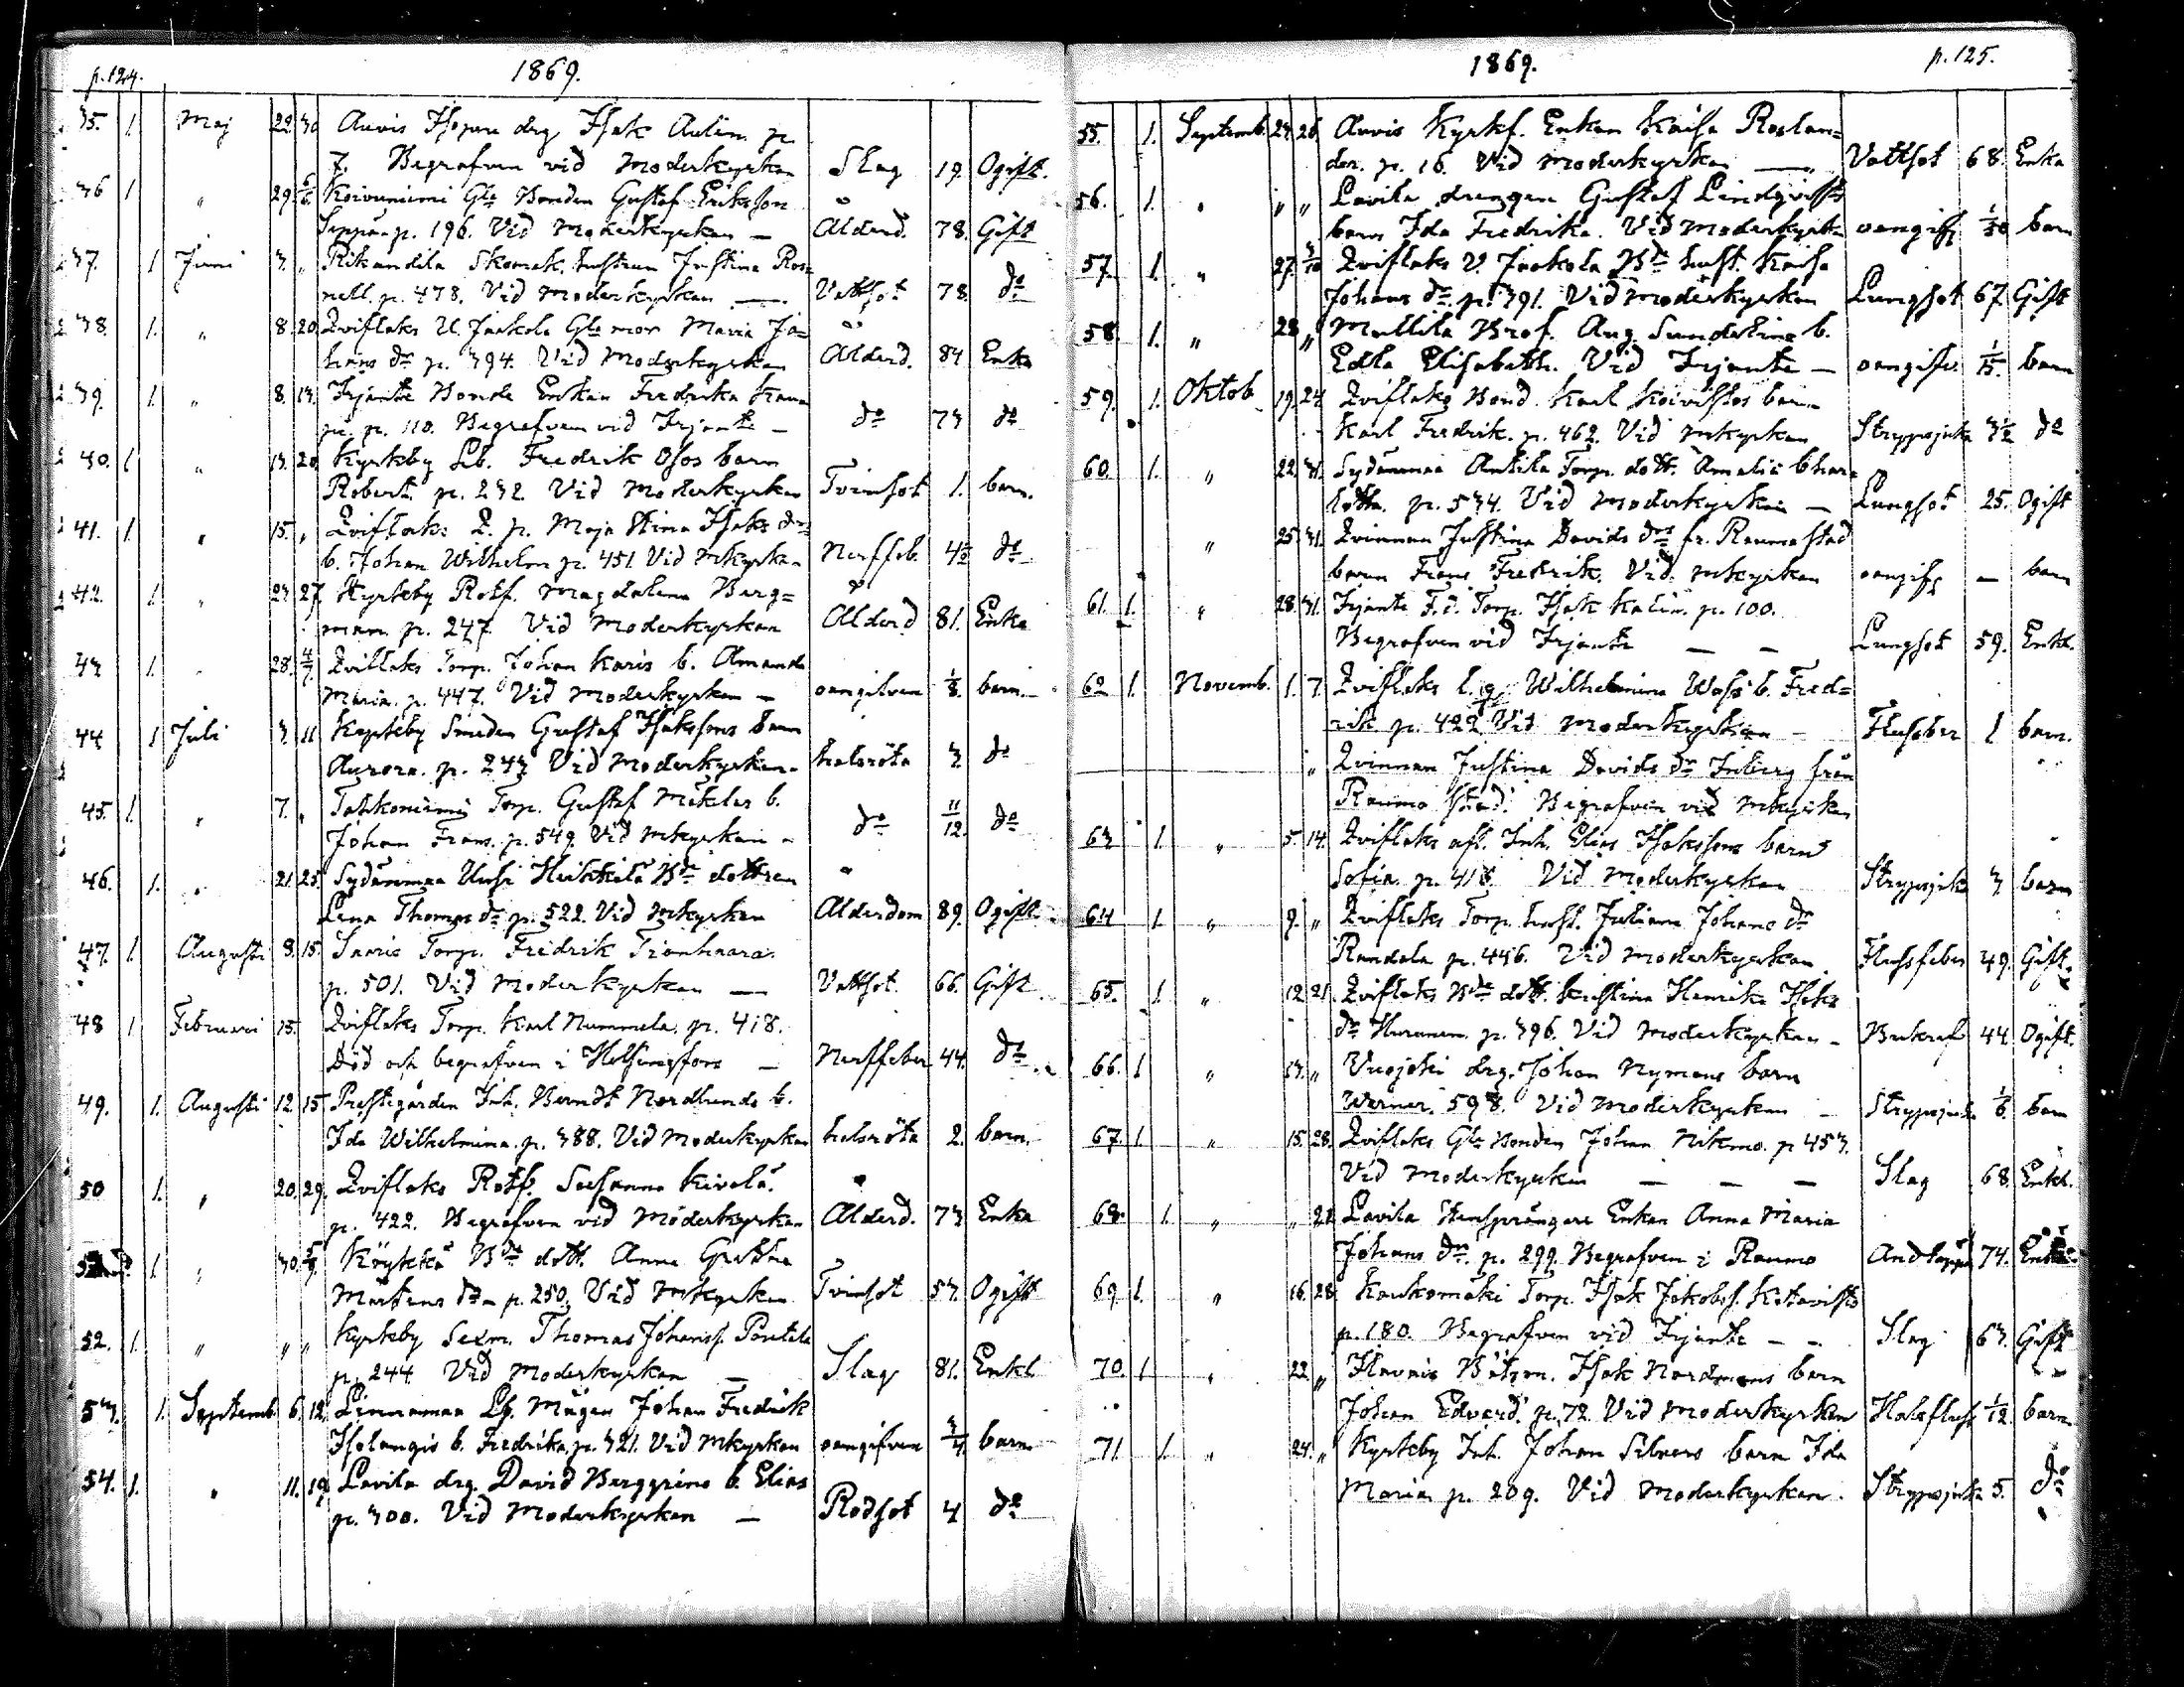 p. 124.
1869.
35. 1. Maj 22. 30 Auvis Ihopare drg Isak Aulin. p.
7. Begrafven vid Moderkyrkan Slag 19. Ogift.
36 1 " 29. 6/6 Koivuniemi Gle Bonden Gustaf Eriksson
Seppä p. 196. Vid Moderkyrkan — Ålderd. 78. Gift
37. 1 Juni 3. " Rikandila Skomak. hustrun Justina Ros=
nell. p. 478. Vid Moderkyrkan — Vattsot 78. do
38. 1. " 8. 20. Qviflaks U. Jaakola Gle mor Maria Jo=
hans dr p. 394. Vid Moderkyrkan Ålderd. 84 Enka
39. 1. " 8. 13. Irjante Bonde Enkan Fredrika
p. 110. Begrafven vid Irjante — do 73 do
40. 1 " 13. 20. Kyrkby Fredrik Osos barn
Robert. p. 232. Vid Moderkyrkan Tvinsot 1. barn.
41. 1. " 15. " Qviflaks Q. p. Maja Stina Isaks dr
b. Johan Wilhelm p. 451. Vid Mkyrkan Nerffeb. 4½ do
42. 1. " 23 27. Kyrkby Rotf. Magdalena Berg=
man. p. 247. Vid Moderkyrkan Ålderd 81. Enka
43 1. " 28. 4/7. Qviflaks Torp. Johan Karis b. Amanda
Maria. p. 447. Vid Moderkyrkan — oangifven 1/8. barn.
44 1 Juli 3. 11 Kyrkby Smeden Gustaf Isakssons barn
Aurora. p. 243 Vid Moderkyrkan. halsröta 3. do
45. 1. " 7. " Torp. Gustaf Mäkelas b.
Johan Frans. p. 549. Vid Mkyrkan — do 11/12. do
46. 1. " 21. 25. Sydänmaa Uusi Heikkilä Bde dottren
Lena Thomas dr p. 522. Vid Mkyrkan Ålderdom 89. Ogift.
47. 1. Augusti 8. 15. Torp. Fredrik
p. 501. Vid Moderkyrkan — Vattsot. 66. Gift.
48 1. Februari 15. Qviflaks Torp. Karl Nummela. p. 418.
Död och begrafven i Helsingfors — Nerffeber 44. do
49. 1. Augusti 12. 15. Prestgården Inh. Berndt Nordlunds b.
Ida Wilhelmina. p. 388. Vid Moderkyrkan halsröta 2. barn.
50 1. " 20. 29. Qviflaks Rotf. Susanna Kivelä.
p. 422. Begrafven vid Moderkyrkan Ålderd. 73 Enka
1. " 30. 5/9. Köykkä Bde dott. Anna Gretha
Mårtens dr p. 250. Vid Mkyrkan Tvinsot 53. Ogift
52. 1. " " " Kyrkby Sexm. Thomas Johanss. Pontela
p. 244. Vid Moderkyrkan — Slag 81. Enkl
53. 1. Septemb. 6. 12. Linnamaa Lf. Mågen Johan Fredrik
Isolangis b. Fredrika, p. 321. Vid Mkyrkan oangifven 3/4 barn
54. 1. " 11. 19. Lavila drg. David Berggrens b. Elias
p. 300. Vid Moderkyrkan — Rödsot 4 do
1869.
p. 125.
55. 1. Septemb. 23. 26. Auvis Kyrkf. Enkan Kaisa Roslan=
der. p. 16. Vid Moderkyrkan — Vattsot 68. Enka
56. 1. " " " Lavila drengen Gustaf Lindqvists
barn Ida Fredrika. Vid Moderkyrk oangif 1/30 barn
57. 1. " 27. 3/10 Qviflaks U. Jaakola Bde hust. Kaisa
Johans dr. p. 391. Vid Moderkyrkan Lungsot 67. Gift
58 1. " 28 " Mullila Brof. Aug. Sundelins b.
Edla Elisabeth. Vid Irjante — oangifv. 1/15. barn
59. 1. Oktob. 19. 24 Qviflaks Bond. Karl Koivistos barn
Karl Fredrik. p. 462. Vid Mkyrkan Strypsjuka 3½ do
60. 1. " 22. 31. Sydänmaa Anttila Torp. dott. Amalia Char=
lotta. p. 534. Vid Moderkyrkan — Lungsot 25. Ogift
" 25. 31. Qvinnan Justina Davids drs fr. Raumo stad
barn Frans Fredrik. Vid Mkyrkan oangif — barn
61. 1. " 28. 31. Irjante F.d. Torp. Isak Kalin. p. 100.
Begrafven vid Irjante — — Lungsot 59. Enkl.
62 1. Novemb. 1. 7. Qviflaks l. q. Wilhelmina Wass b. Fred=
rik p. 422 Vid Moderkyrkan — Flussfeber 1 barn.
" Qvinnan Justina Davids dr Inberg från
Raumo stad. Begrafven vid Mkyrkan
63 1. " 5. 14. Qviflaks afl. Inh. Elias Isakssons barn
Sofia. p. 418. Vid Moderkyrkan Strypsjuka 3 barn
64 1. " 9. " Qviflaks Torp. hust. Juliana Johans dr
Randala p. 446. Vid Moderkyrkan Flussfeber 49. Gift.
65. 1. " 12. 21. Qviflaks Bde dott. Justina Henrika Isaks
dr Huranen. p. 396. Vid Moderkyrkan — 44 Ogift.
66. 1 " 13. " Vuojoki drg. Johan Nymans barn
Werner. 598. Vid Moderkyrkan — Strypsjuka 1/6 barn
67. 1. " 15. 28. Qviflaks Gle Bonden Johan Nikamo. p. 453.
Vid Moderkyrkan — — — Slag 68. Enkl.
68. 1. " " 21. Lavila Stensprängare Enkan Anna Maria
Johans dr. p. 299. Begrafven i Raumo Andtäppa 74. Enka
69. 1. " 16. 28. Kaukomäki Torp. Isak Jakobss. Kitavisto
p. 180. Begrafven vid Irjante — — Slag 63. Gift
70. 1 " 22 " Båtsm. Isak Nordmans barn
Johan Edvard. p. 72. Vid Moderkyrkan Halsfluss 1/12. barn
71. 1. " 24. " Kyrkby Inh. Johan Silvers barn Ida
Maria p. 209. Vid Moderkyrkan. Strypsjuka 5. do